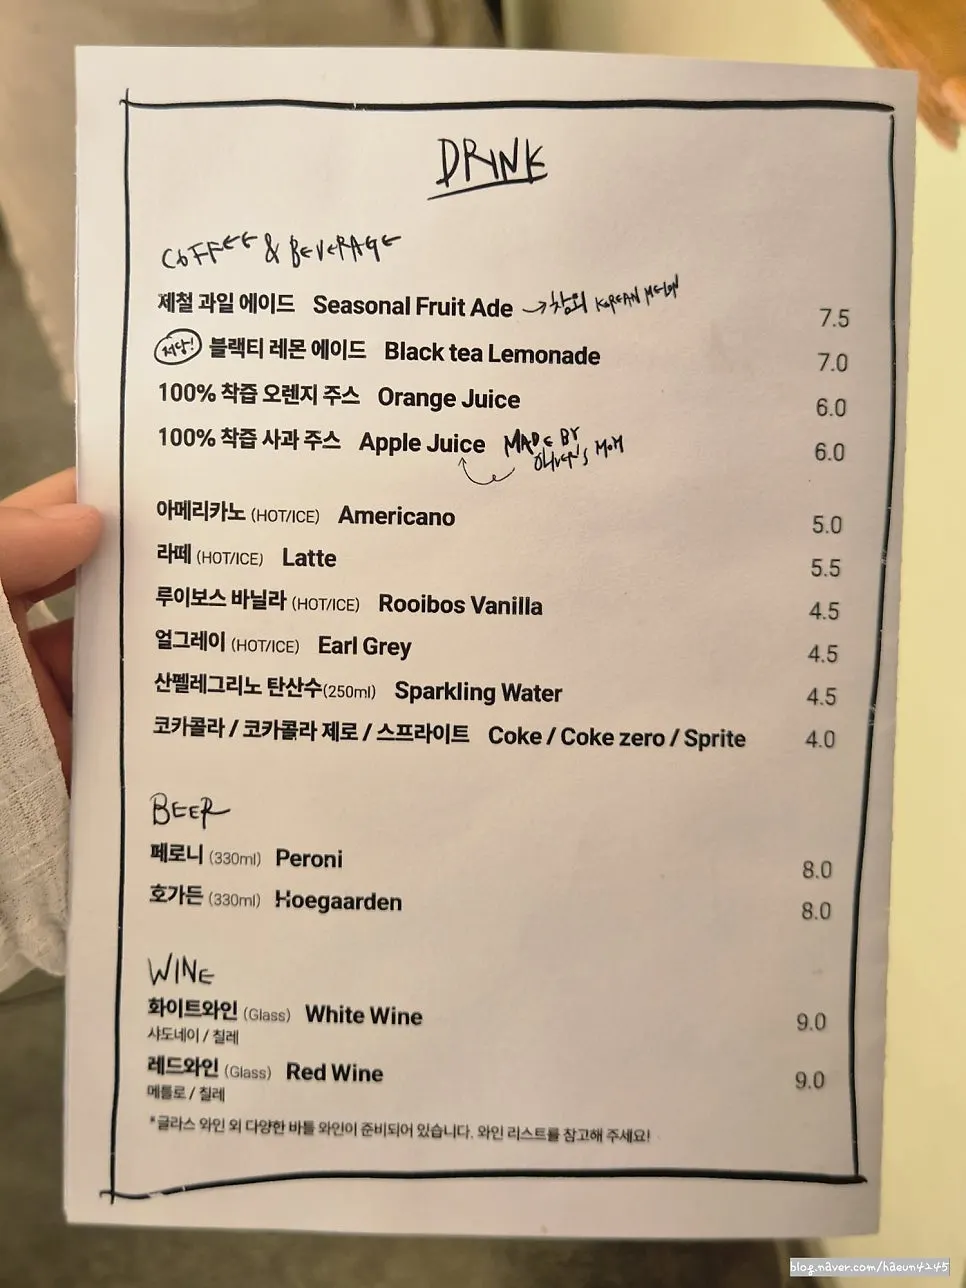 DRINK
COFFEE & BEVERAGE
제철 과일 에이드 Seasonal Fruit Ade → 참외 KOREAN MELON 7.5
저당! 블랙티 레몬 에이드 Black tea Lemonade 7.0
100% 착즙 오렌지 주스 Orange Juice 6.0
100% 착즙 사과 주스 Apple Juice MADE BY OLIVER'S MOM 6.0
아메리카노 (HOT/ICE) Americano 5.0
라떼 (HOT/ICE) Latte 5.5
루이보스 바닐라 (HOT/ICE) Rooibos Vanilla 4.5
얼그레이 (HOT/ICE) Earl Grey 4.5
산펠레그리노 탄산수(250ml) Sparkling Water 4.5
코카콜라 / 코카콜라 제로 / 스프라이트 Coke / Coke zero / Sprite 4.0
BEER
페로니 (330ml) Peroni 8.0
호가든 (330ml) Hoegaarden 8.0
WINE
화이트와인 (Glass) White Wine 9.0
샤도네이 / 칠레
레드와인 (Glass) Red Wine 9.0
메를로 / 칠레
*글라스 와인 외 다양한 바틀 와인이 준비되어 있습니다. 와인 리스트를 참고해 주세요!
blog.naver.com/haeun4245